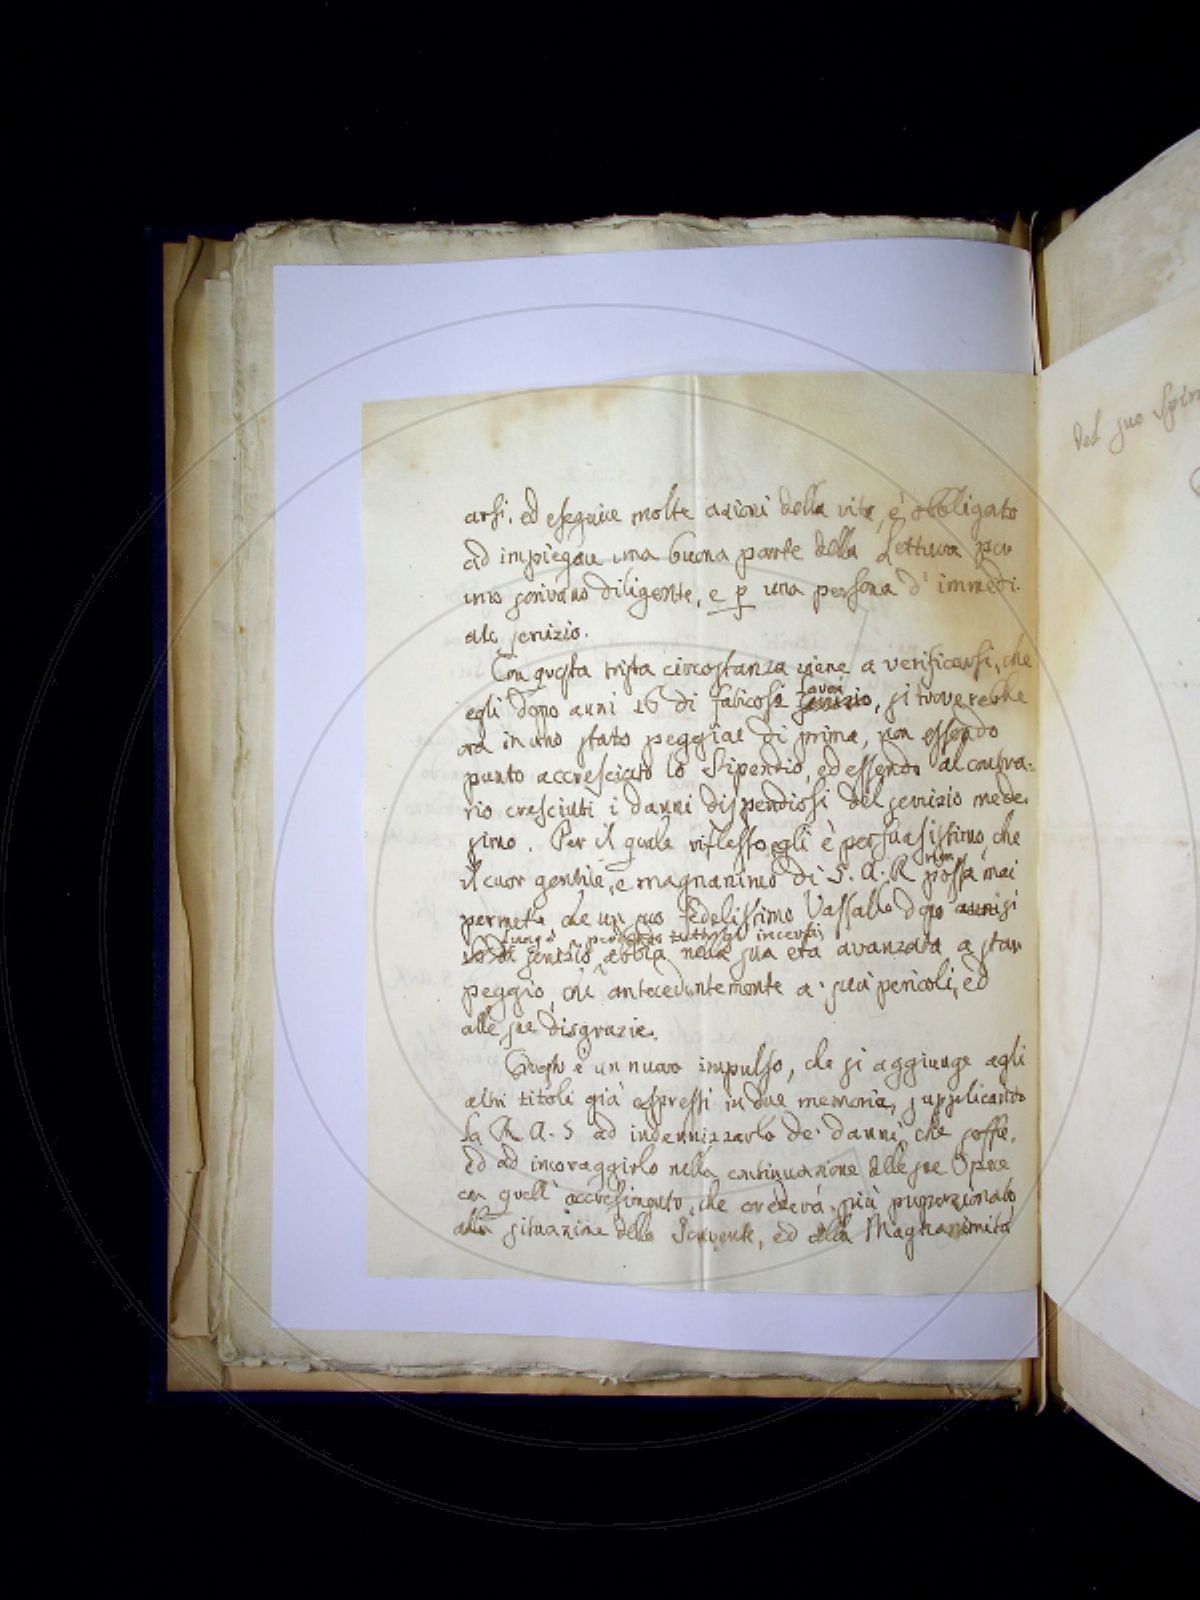 arsi, ed eseguire molte azioni della vita, è obbligato
ad impiegare una buona parte della Lettura per
uno scrivano diligente, e p una persona d' immedi-
ato servizio.
Con questa trista circostanza viene a verificarsi, che
egli dopo anni 16 di faticosi lavori servizio, si troverebbe
ora in uno stato peggior di prima, non essendo
punto accresciuto lo Stipendio, ed essendo al contra-
rio cresciuti i danni dispendiosi del servizio mede-
simo. Per il quale riflesso egli è persuasissimo, che
il cuor gentile, e magnanimo di S. A. R non possa mai
permetter che un suo fedelissimo Vassallo dopo anni si
lungo servizio, abbia nella sua età avanzata a star
peggio, che antecedentemente a' suoi pericoli, ed
alle sue disgrazie.
Questo è un nuovo impulso, che si aggiunge agli
altri titoli già espressi in due memorie, supplicando
la R. A. S ad indennizzarlo de' danni, che soffre,
ed ad incoraggirlo nella continuazione delle sue Opere
con quell' accrescimento, che crederà più proporzionato
alla situazione dello Scrivente, ed alla Magnanimità
del suo